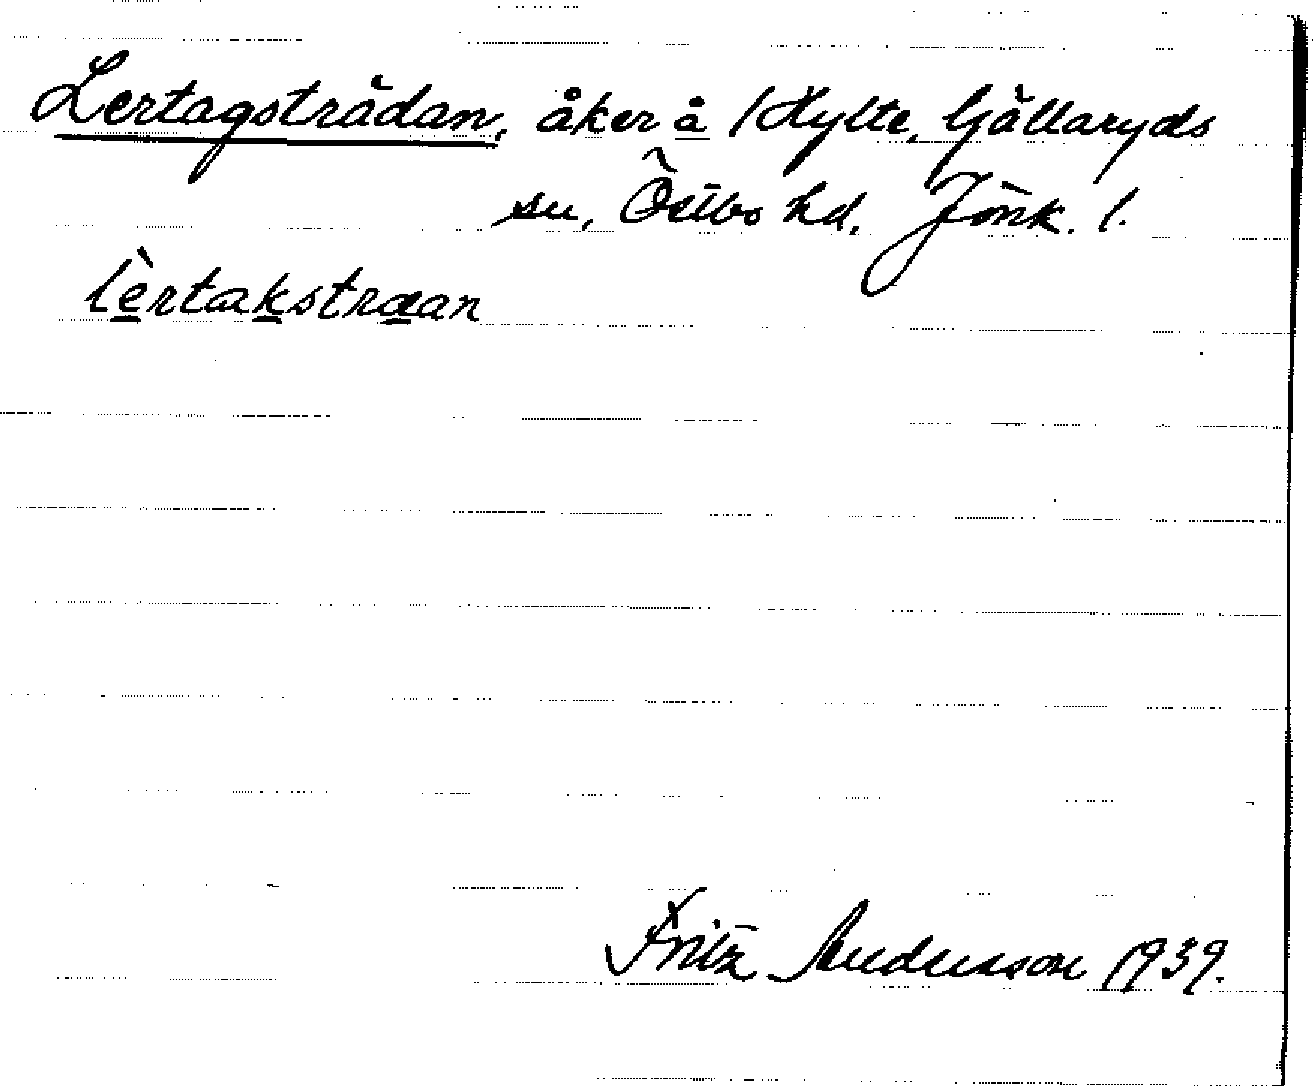 Lertagsträdan, åker å Hylte, Gällaryds
sn, Östbo hd. Jönk. l.
lèrtakstraan
Fritz Andersson 1939.